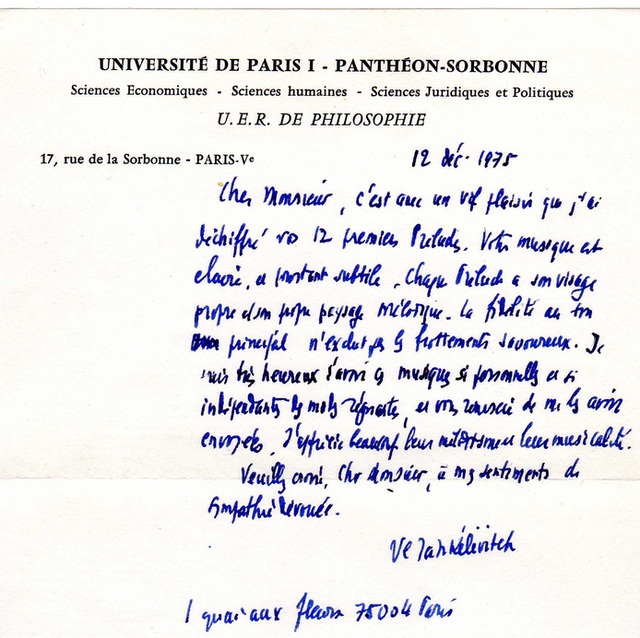 UNIVERSITÉ DE PARIS I - PANTHÉON-SORBONNE
Sciences Economiques - Sciences humaines - Sciences Juridiques et Politiques
U.E.R. DE PHILOSOPHIE
17, rue de la Sorbonne - PARIS-Ve
12 déc. 1975
Cher Monsieur, c'est avec un vif plaisir que j'ai
déchiffré vos 12 premiers Préludes. Votre musique est
claire, et pourtant subtile. Chaque Prélude a son visage
propre et son propre paysage mélodique. La fidélité au ton
principal n'exclut pas les frottements savoureux. Je
suis très heureux d'avoir ces musiques si personnelles et si
indépendantes des modes régnantes, et vous remercie de me les avoir
envoyées. J'apprécie beaucoup leur et leur musicalité.
Veuillez croire, Cher Monsieur, à mes sentiments de
sympathie dévouée.
Vl Jankélévitch
1 quai aux fleurs 75004 Paris